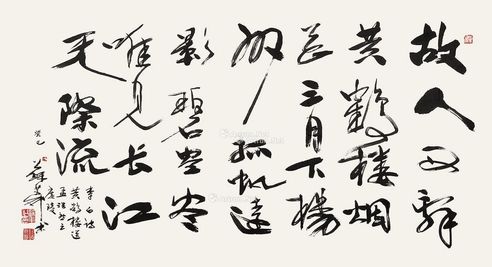 故人西辞
黄鶴楼烟
花三月下揚
州孤帆遠
影碧空尽
唯见长江
天際流
李白诗
黄鹤楼送
孟浩然之
廣陵
癸巳